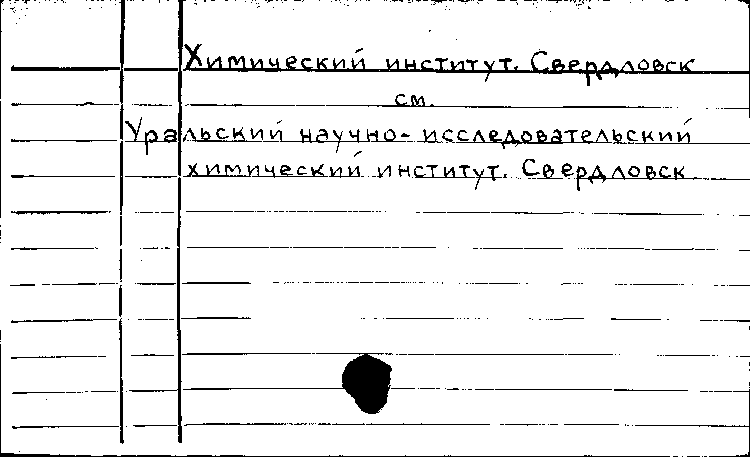 Химический институт. Свердловск
см.
Уральский научно-исследовательский
химический институт. Свердловск.